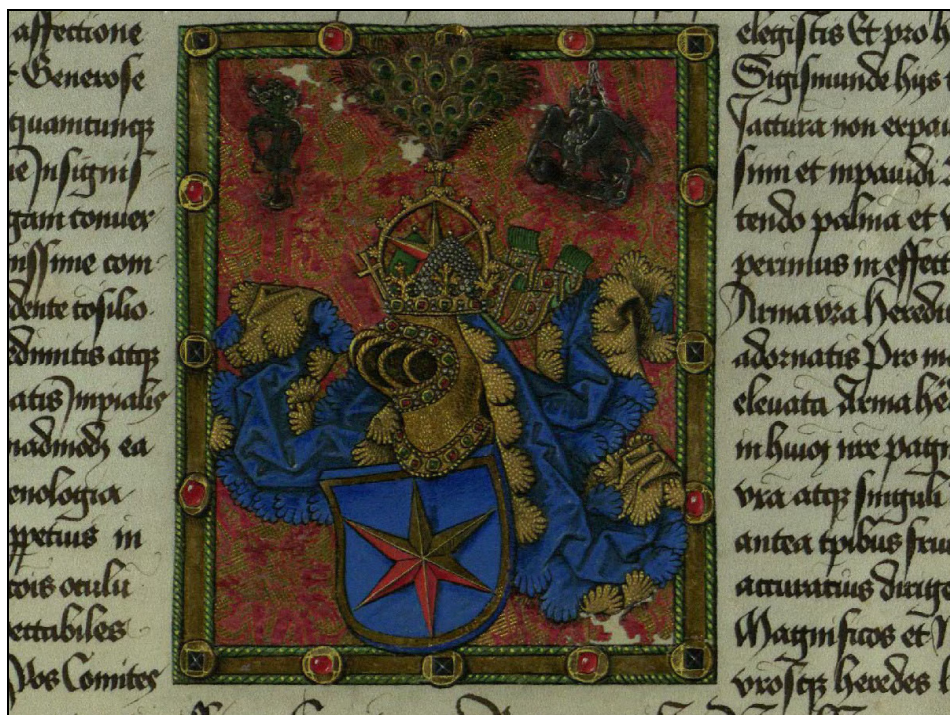 affectione
Generose
quamtumqz
Insignis
gam conuer
nissime com
dente cosilio
atqz
atis Impialis
madmodz ea
enologia
ppetuis in
cois oculu
ectabiles
Vos Comites
elegistis Et pro
Sigismunde hijs
Jactura non expau
simi et inpauidi
tendo palma et
perimus in effect
Arma vra heredi
adornatis Pro
eleuata Arma he
in nre pagin
vra atqz singuli
antea tpibus fru
accuratius dirige
Magnificos et
vrosqz heredes